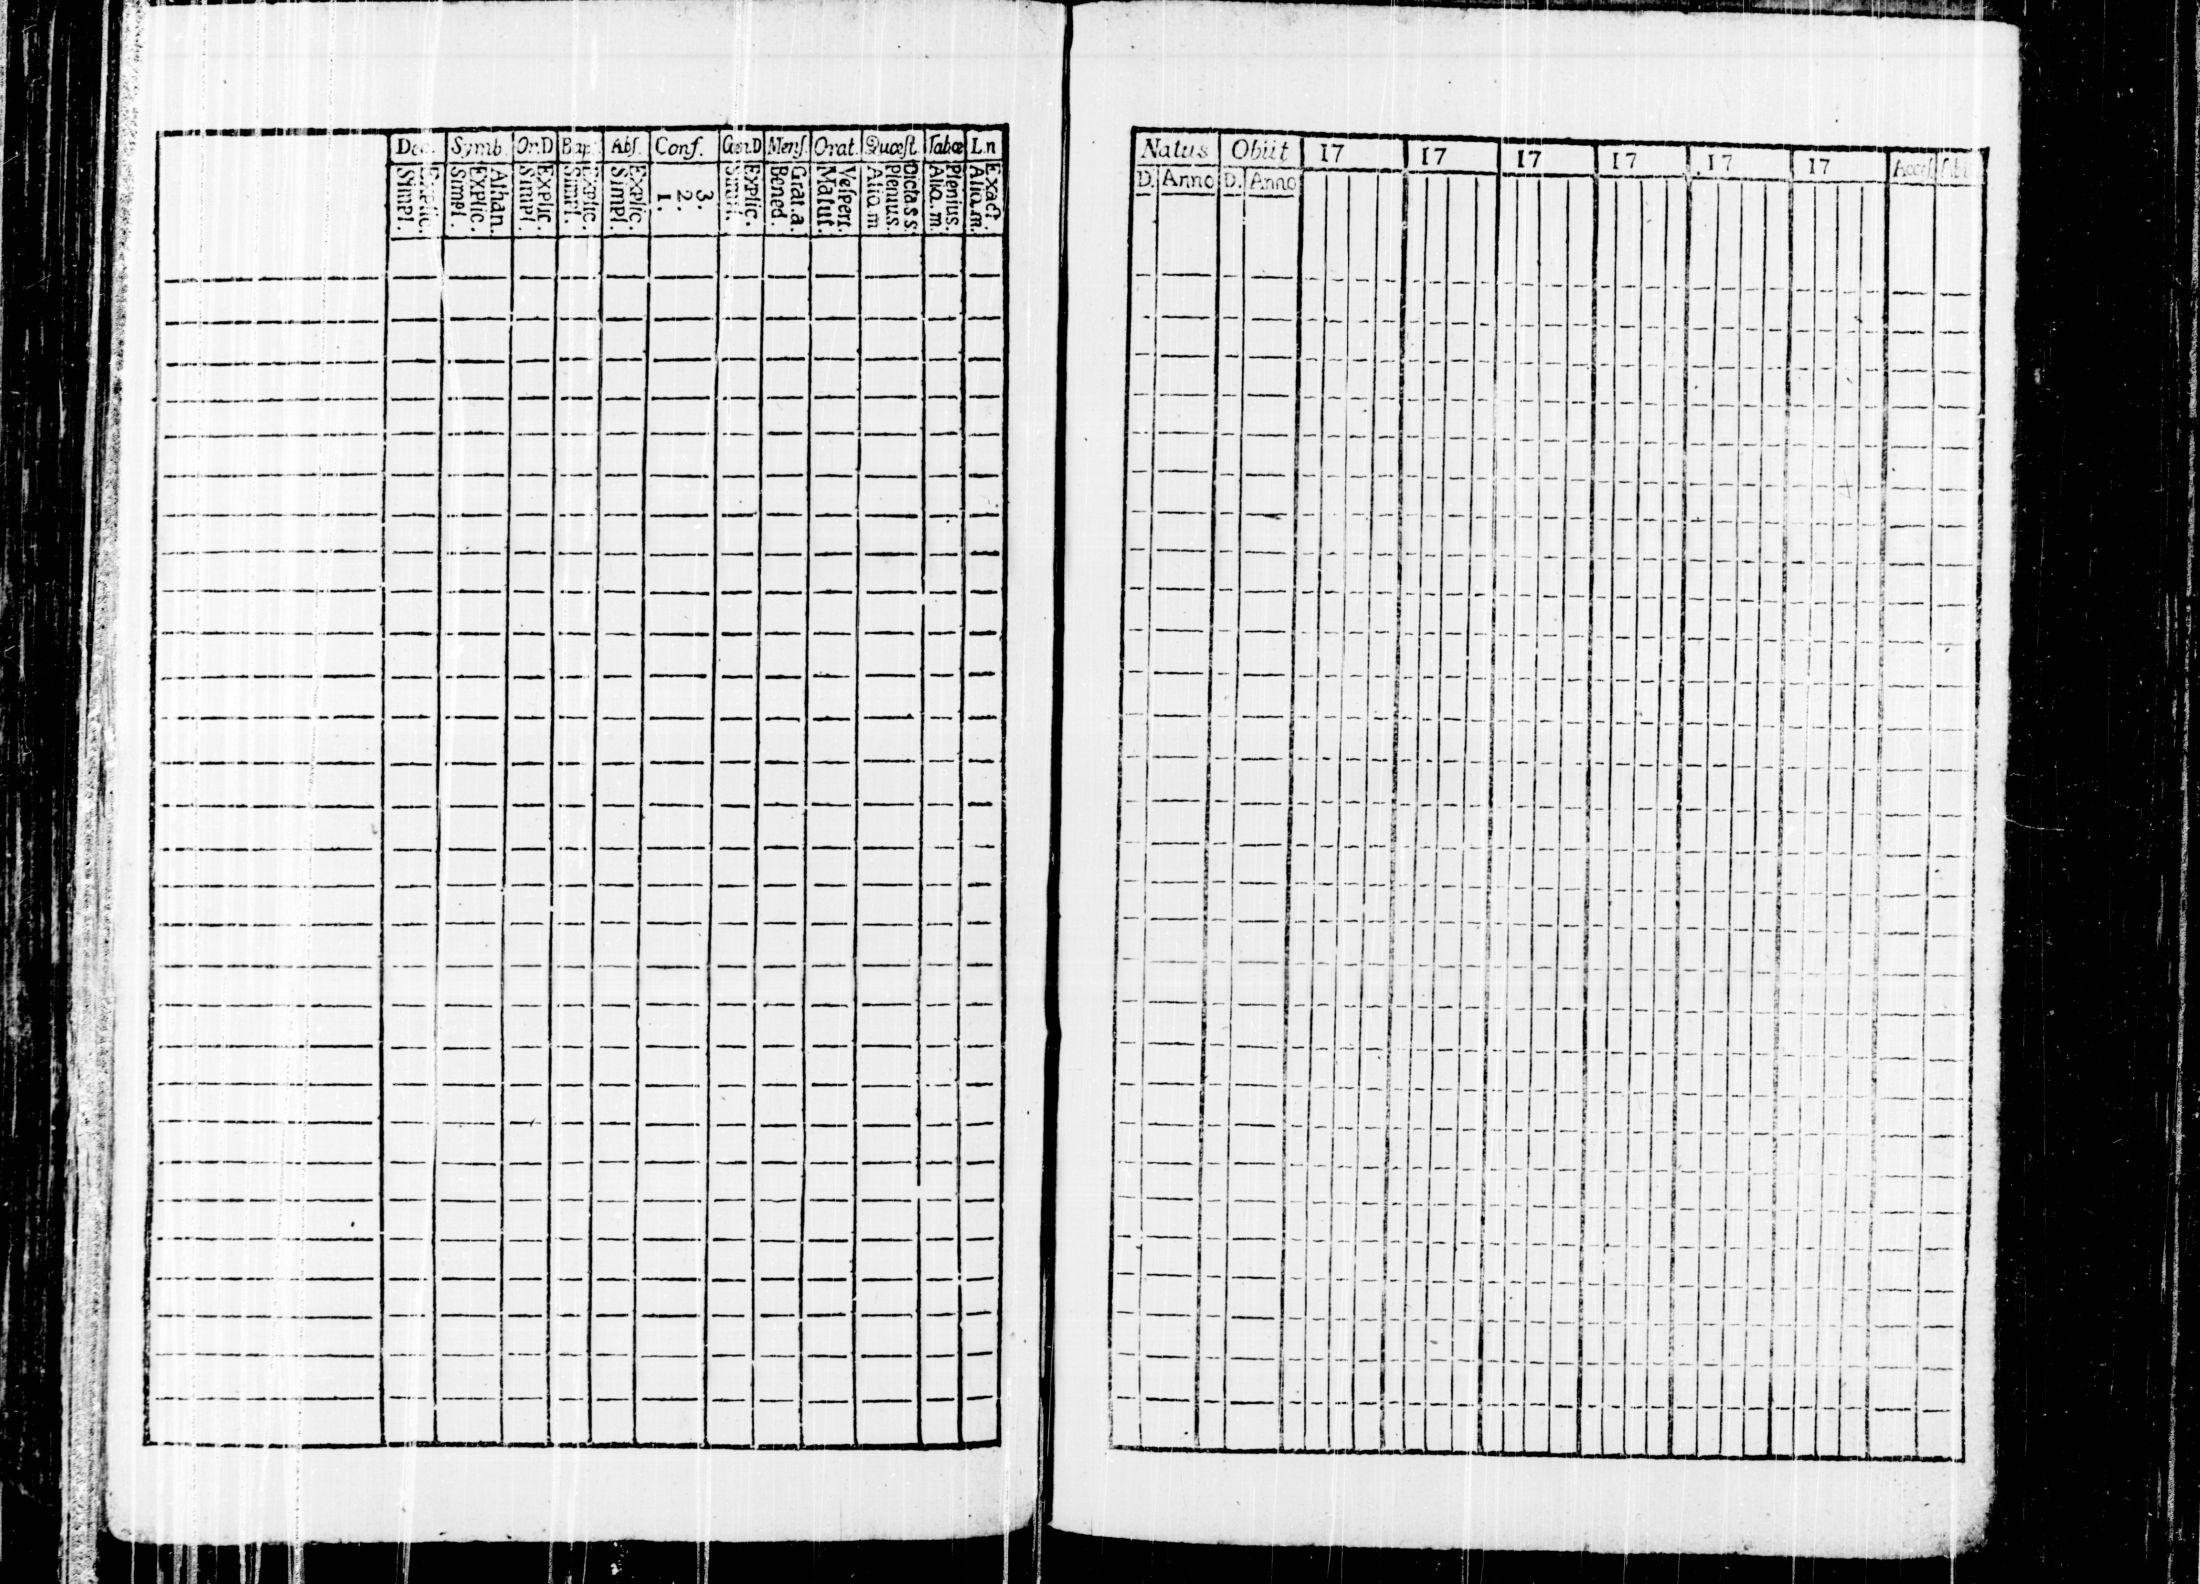 Dec. Symb. Or.D Bap. Abſ. Conf. Cœn.D Menſ. Orat. Quæſt. Tabœ L.n
Explic. Simpl.
Athan. Explic. Simpl.
Explic. Simpl.
Explic. Simpl.
Explic. Simpl.
3. 2. 1.
Explic. Simpl.
Grat.a. Bened.
Veſpert. Matut.
Dicta ss. Plenius. Aliq.m
Plenius. Aliq.m.
Exact. Aliq.m.
Natus Obiit 17 17 17 17 17 17 Acceſ. Abi
D. Anno D. Anno